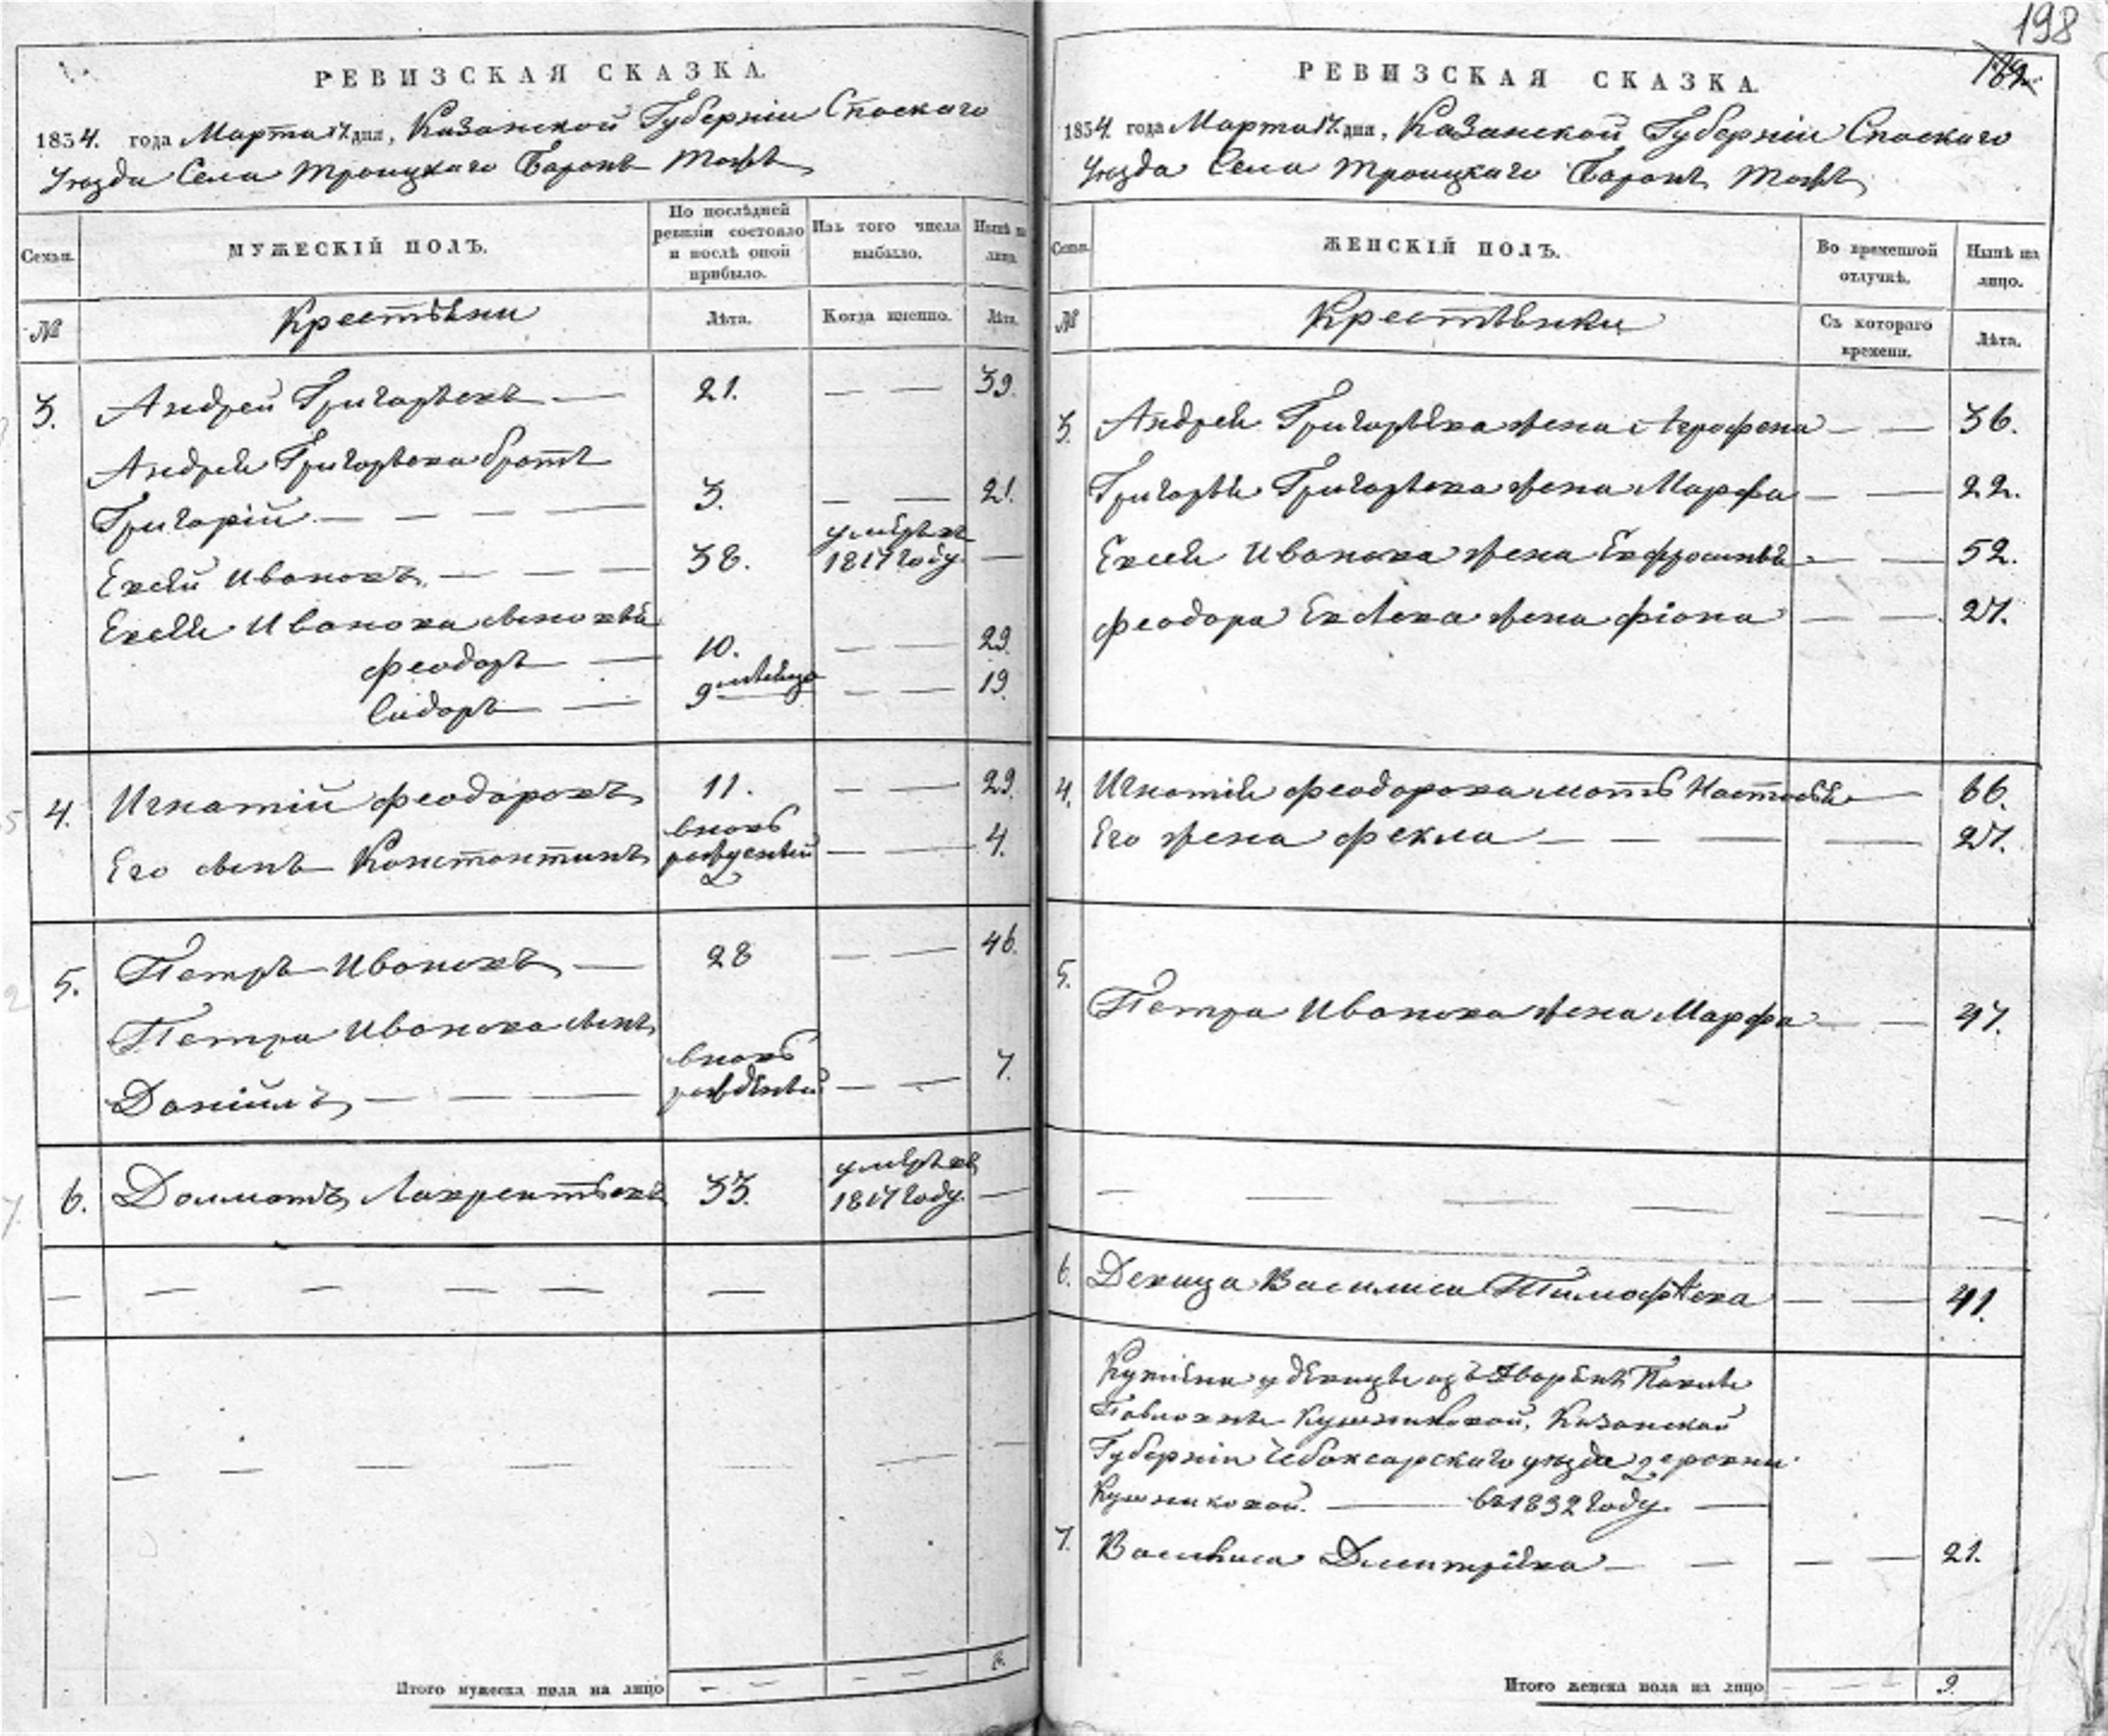 198
РЕВИЗСКАЯ СКАЗКА.
1834. года Марта 17. дня, Казанской Губерніи Спаскаго
Уезда Села Троицкаго Баронъ тожъ
Семьи.
МУЖЕСКІЙ ПОЛЪ.
По послѣдней ревизіи состояло и послѣ оной прибыло.
Изъ того числа выбыло.
Нынѣ на лицо.
№
Крестьяни
Лѣта.
Когда именно.
Лѣта.
3. Андрей Григорьевъ — 21. — — 39.
Андрея Григорьева братъ
Григорій — — — — 3. — — 21.
Евсей Ивановъ — — — 38. умеръ въ 1817 году. —
Евсея Иванова сыновья
Феодоръ — 10. — — 29.
Сидоръ — 9 месяцъ — — 19.
4. Игнатій Феодоровъ 11. — — 29.
Его сынъ Константинъ вновь рожденный — — 4.
5. Петръ Ивановъ — 28 — — 46.
Петра Иванова сынъ
Даніилъ — — — вновь рожденый — — 7.
6. Долматъ Лаврентьевъ 33. умеръ въ 1817 году. —
Итого мужеска пола на лицо — — — 8.
РЕВИЗСКАЯ СКАЗКА.
1834. года Марта 17. дня, Казанской Губерніи Спаскаго
Уезда Села Троицкаго Баронъ тожъ
Семьи.
ЖЕНСКІЙ ПОЛЪ.
Во временной отлучкѣ.
Нынѣ на лицо.
№
Крестьянки
Съ котораго времени.
Лѣта.
3. Андрея Григорьева жена Агрофена — — 36.
Григорья Григорьева жена Марфа — — 22.
Евсея Иванова жена Евфросинья — — 52.
Феодора Евсеева жена Фіона — — 27.
4. Игнатія Феодорова мать Настасья — 66.
Его жена Фекла — — — — 27.
5. Петра Иванова жена Марфа — — 47.
6. Девица Василиса Тимофѣева — — 41.
Куплена у девицы изъ Дворянъ
Павловны Кушниковой, Казанской
Губерніи Чебоксарскаго уезда деревни
Кушниковой. — въ 1832 году. —
7. Василиса Дмитріева — — — — 21.
Итого женска пола на лицо — — — 9.